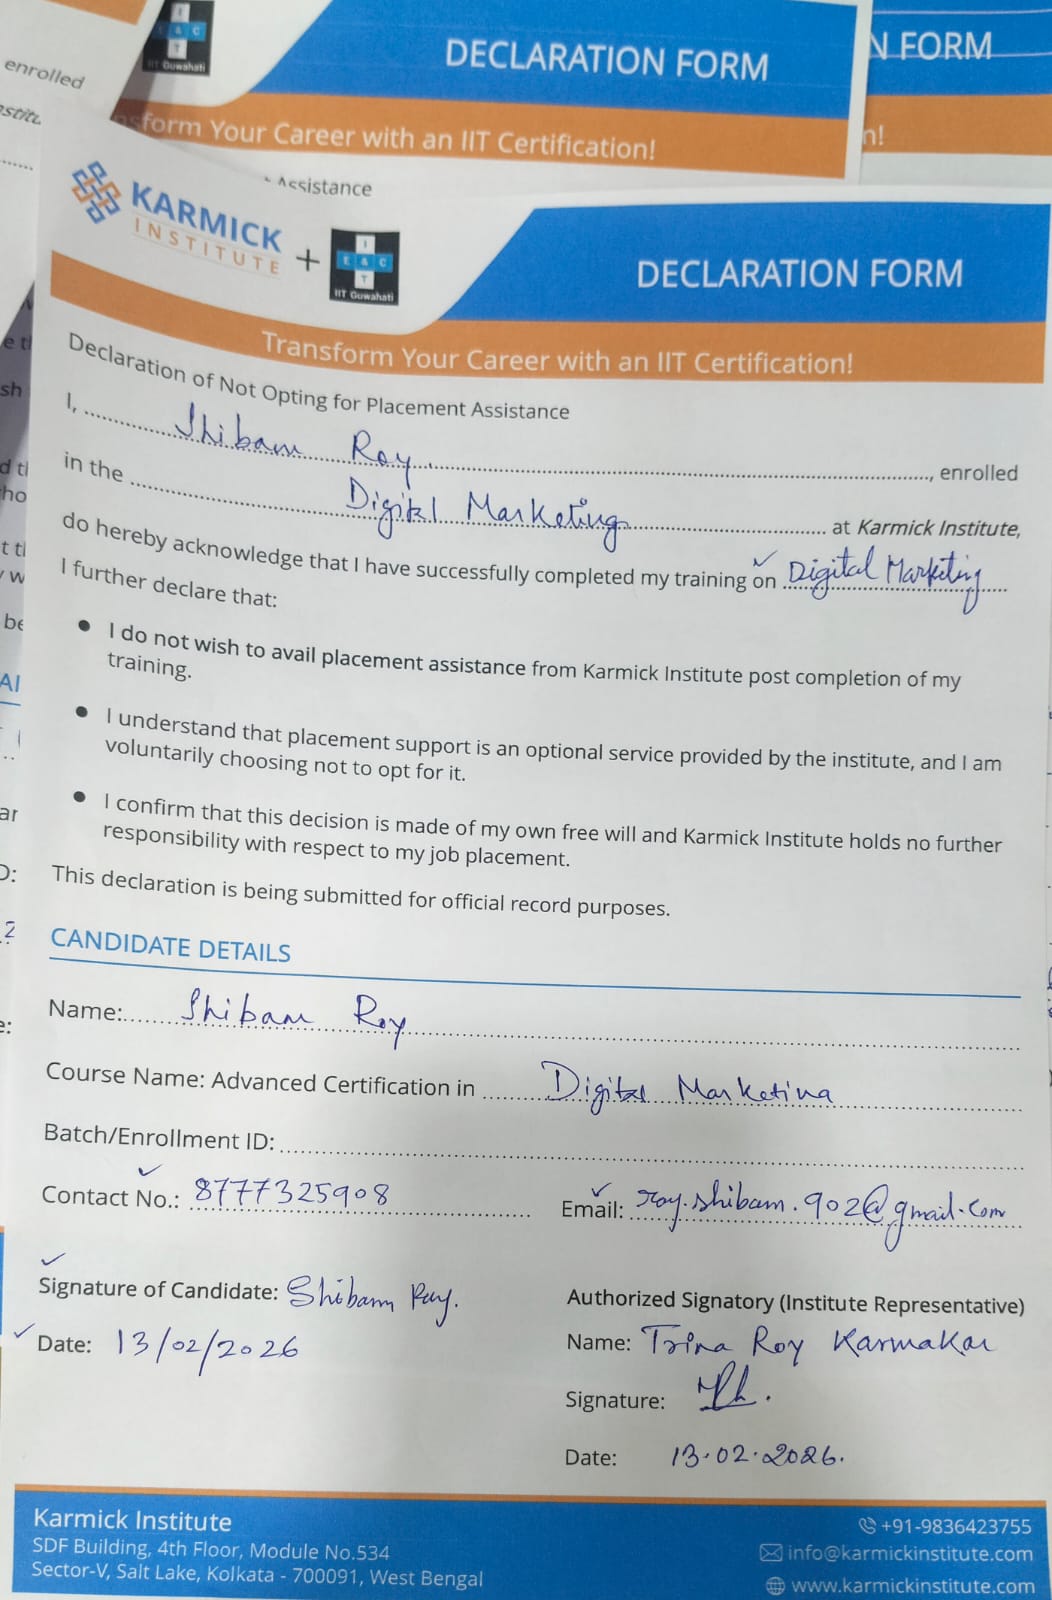 enrolled
I E & C T
IIT Guwahati
DECLARATION FORM
N FORM
nsform Your Career with an IIT Certification!
n!
Assistance
KARMICK
INSTITUTE
+
I E & C T
IIT Guwahati
DECLARATION FORM
Transform Your Career with an IIT Certification!
Declaration of Not Opting for Placement Assistance
I, Shibam Roy, enrolled
in the Digital Marketing at Karmick Institute,
do hereby acknowledge that I have successfully completed my training on Digital Marketing
I further declare that:
• I do not wish to avail placement assistance from Karmick Institute post completion of my
training.
• I understand that placement support is an optional service provided by the institute, and I am
voluntarily choosing not to opt for it.
• I confirm that this decision is made of my own free will and Karmick Institute holds no further
responsibility with respect to my job placement.
This declaration is being submitted for official record purposes.
CANDIDATE DETAILS
Name: Shibam Roy
Course Name: Advanced Certification in Digital Marketing
Batch/Enrollment ID:
Contact No.: 8777325908 Email: roy.shibam.902@gmail.com
Signature of Candidate: Shibam Roy.
Date: 13/02/2026
Authorized Signatory (Institute Representative)
Name: Trina Roy Karmakar
Signature:
Date: 13.02.2026.
Karmick Institute
SDF Building, 4th Floor, Module No.534
Sector-V, Salt Lake, Kolkata - 700091, West Bengal
+91-9836423755
info@karmickinstitute.com
www.karmickinstitute.com